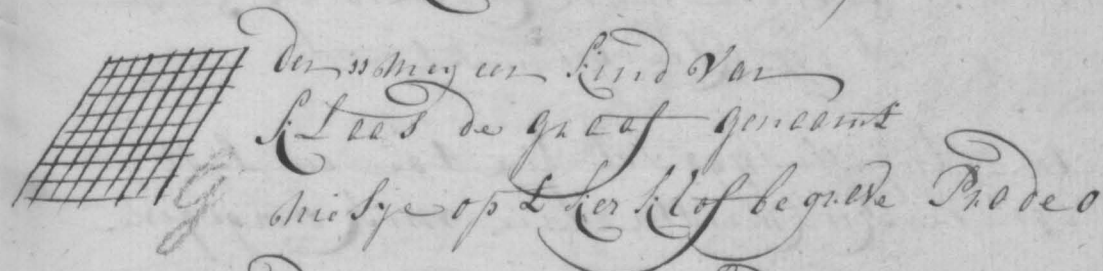 Den 11 Meij een kind van
Klaas de graaf genaamt
op t kerkhof begrave Pradeo